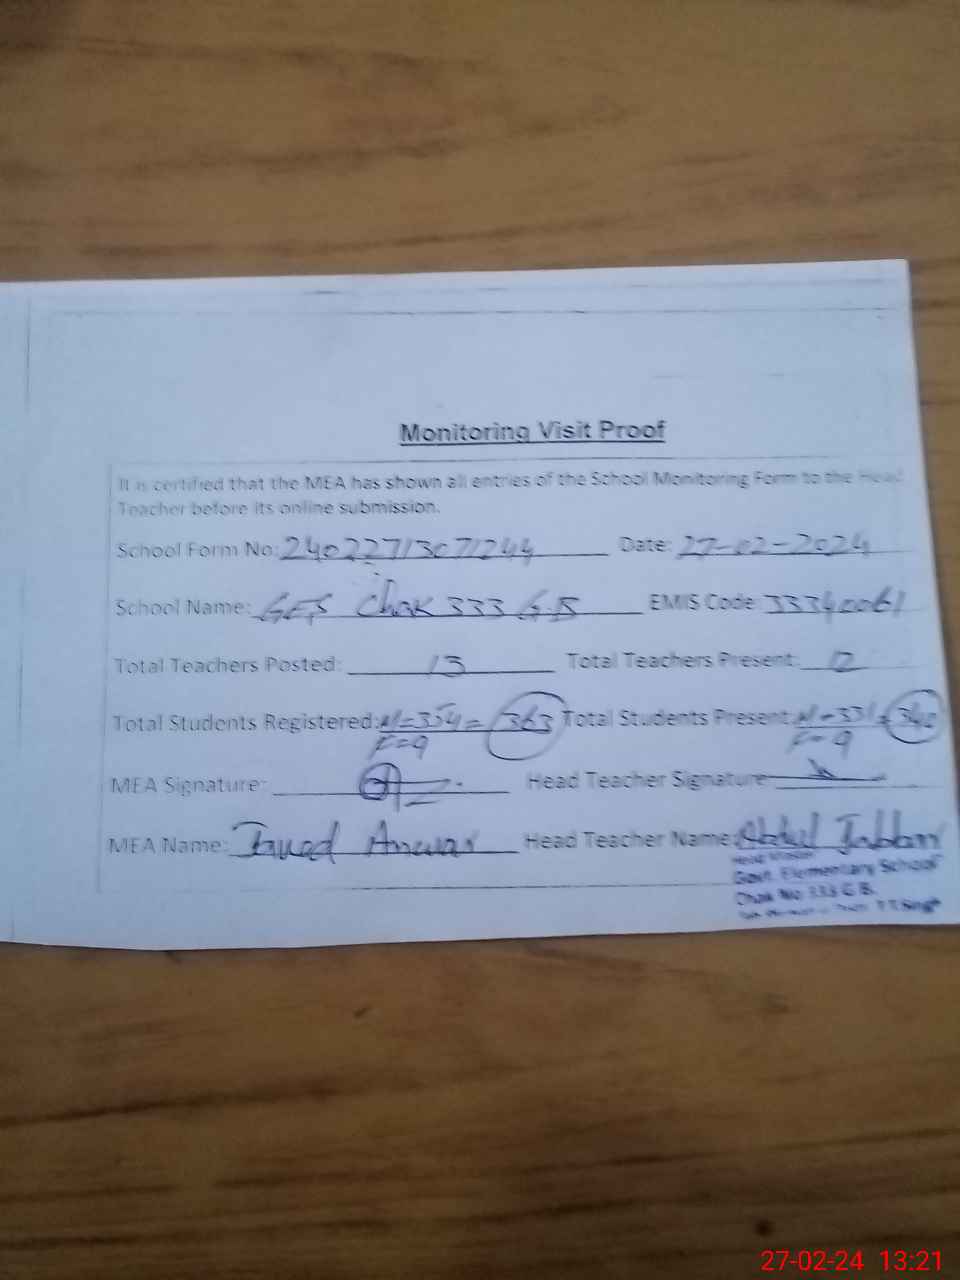 Monitoring Visit Proof
It is certified that the MEA has shown all entries of the School Monitoring Form to the Head
Teacher before its online submission.
School Form No: 24022713071244 Date: 27-02-2024
School Name: GES Chak 333 G.B EMIS Code: 33340061
Total Teachers Posted: 13 Total Teachers Present: 12
Total Students Registered: N=354= 363 Total Students Present: N=331= 340
F=9 F=9
MEA Signature: Head Teacher Signature
MEA Name: Javed Anwar Head Teacher Name: Abdul Jabbar
Head Master
Govt. Elementary School
Chak No 333 G B.
T.T.Singh
27-02-24 13:21